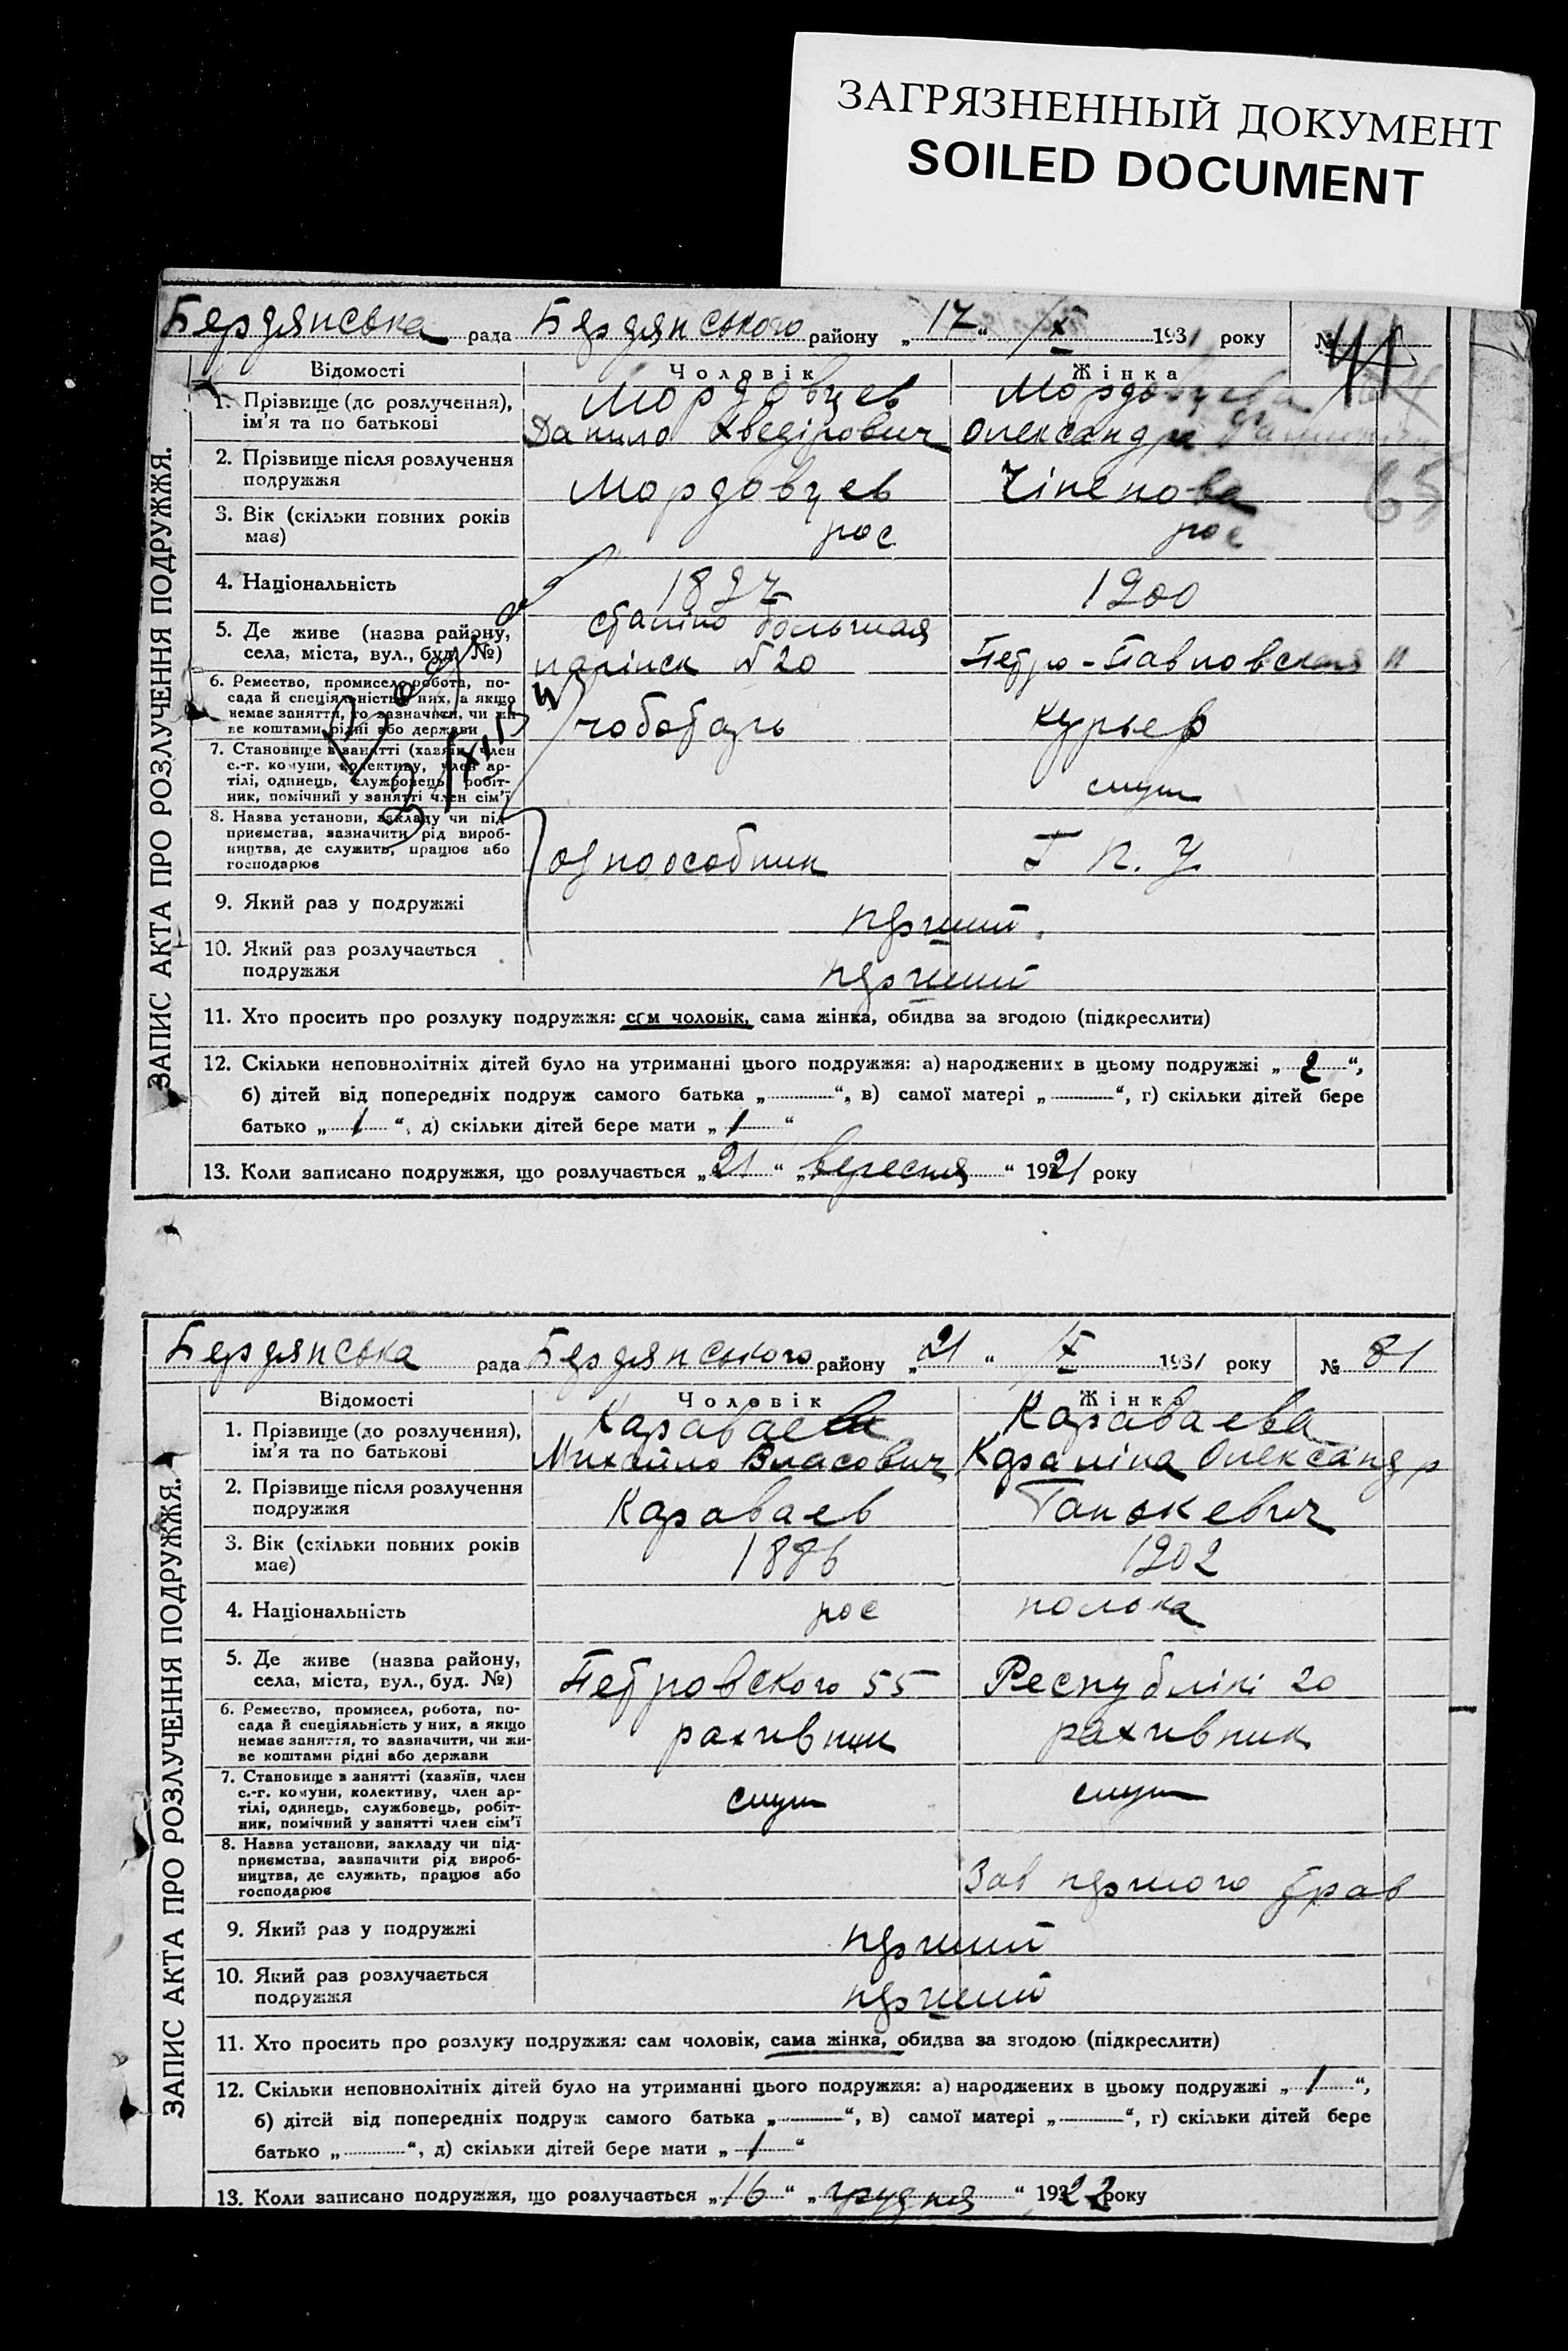 ЗАГРЯЗНЕННЫЙ ДОКУМЕНТ
SOILED DOCUMENT
Бердянська рада Бердянського району „17“ IX 1931 року №
ЗАПИС АКТА ПРО РОЗЛУЧЕННЯ ПОДРУЖЖЯ.
Відомості Чоловік Жінка
1. Прізвище (до розлучення), ім'я та по батькові
Мордовцев
Данило Хведірович
Мордовцева
Олександра
2. Прізвище після розлучення подружжя
Мордовцев
65
3. Вік (скільки повних років має)
рос рос
4. Національність
1897 1900
5. Де живе (назва району, села, міста, вул., буд. №)
Сталіно большая
№ 20 Петро-Павловская 11
6. Ремество, промисел, робота, по-
сада й спеціяльність у них, а якщо
немає заняття, то зазначити, чи жи-
ве коштами рідні або держави
чоботарь курьер
7. Становище в занятті (хазяїн, член
с.-г. комуни, колективу, член ар-
тілі, одинець, службовець, робіт-
ник, помічний у занятті член сім'ї
служ
8. Назва установи, закладу чи під-
приємства, зазначити рід вироб-
ництва, де служить, працює або
господарює
одноособник Г П. У.
9. Який раз у подружжі
перший
10. Який раз розлучається
подружжя
перший
11. Хто просить про розлуку подружжя: сам чоловік, сама жінка, обидва за згодою (підкреслити)
12. Скільки неповнолітніх дітей було на утриманні цього подружжя: а) народжених в цьому подружжі „2“,
б) дітей від попередніх подруж самого батька „“, в) самої матері „“, г) скільки дітей бере
батько „1“, д) скільки дітей бере мати „1“
13. Коли записано подружжя, що розлучається „21“ „вересня“ 1921 року
Бердянська рада Бердянського району „21“ IX 1931 року № 81
ЗАПИС АКТА ПРО РОЗЛУЧЕННЯ ПОДРУЖЖЯ.
Відомості Чоловік Жінка
1. Прізвище (до розлучення),
ім'я та по батькові
Караваев
Михайло Власович
Караваева
Караліна Олександр
2. Прізвище після розлучення
подружжя
Караваев Танькевич
3. Вік (скільки повних років
має)
1886 1902
4. Національність
рос полька
5. Де живе (назва району,
села, міста, вул., буд. №)
Петровского 55 Республіки 20
6. Ремество, промисел, робота, по-
сада й спеціяльність у них, а якщо
немає заняття, то зазначити, чи жи-
ве коштами рідні або держави
рахивник рахивник
7. Становище в занятті (хазяїн, член
с.-г. комуни, колективу, член ар-
тілі, одинець, службовець, робіт-
ник, помічний у занятті член сім'ї
служ служ
8. Назва установи, закладу чи під-
приємства, зазначити рід вироб-
ництва, де служить, працює або
господарює
Зав першого трав
9. Який раз у подружжі
перший
10. Який раз розлучається
подружжя
перший
11. Хто просить про розлуку подружжя: сам чоловік, сама жінка, обидва за згодою (підкреслити)
12. Скільки неповнолітніх дітей було на утриманні цього подружжя: а) народжених в цьому подружжі „1“,
б) дітей від попередніх подруж самого батька „“, в) самої матері „“, г) скільки дітей бере
батько „“, д) скільки дітей бере мати „1“
13. Коли записано подружжя, що розлучається „16“ „грудня“ 1922 року